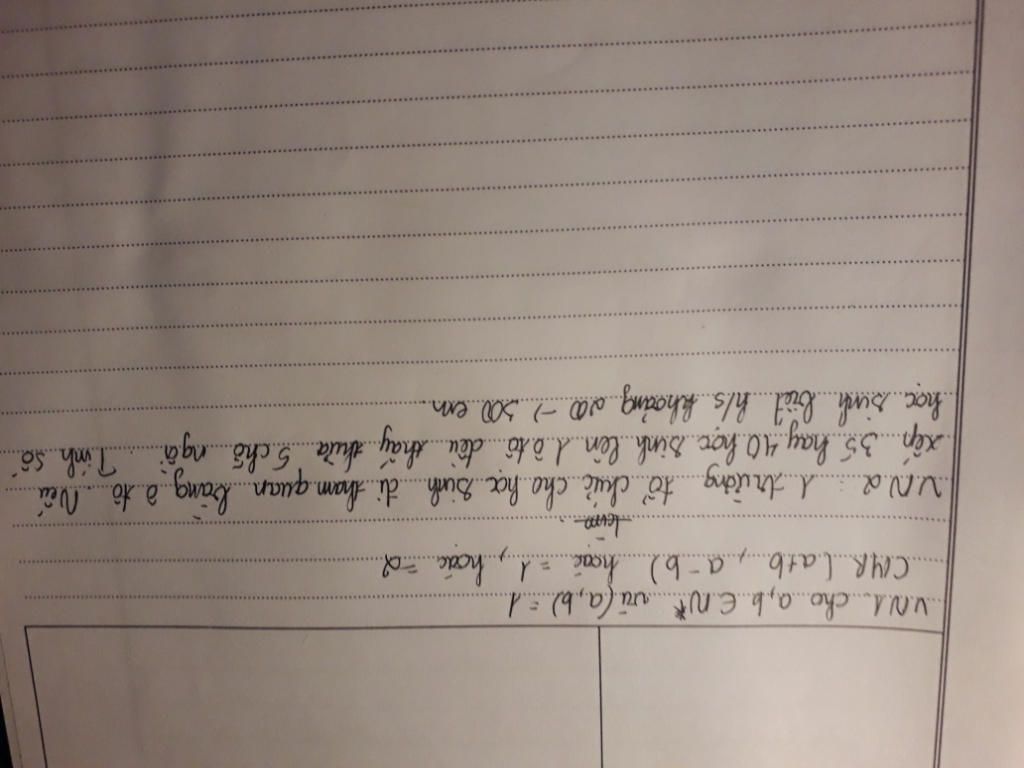 VN1. cho a, b ∈ N* với (a, b) = 1
CMR (a+b, a-b) hoặc = 1, hoặc = 2
VN2: 1 trường tổ chức cho học sinh đi tham quan bằng ô tô. Nếu
xếp 35 hay 40 học sinh lên 1 ô tô đều thấy thừa 5 chỗ ngồi. Tính số
học sinh biết h/s khoảng 200 → 300 em